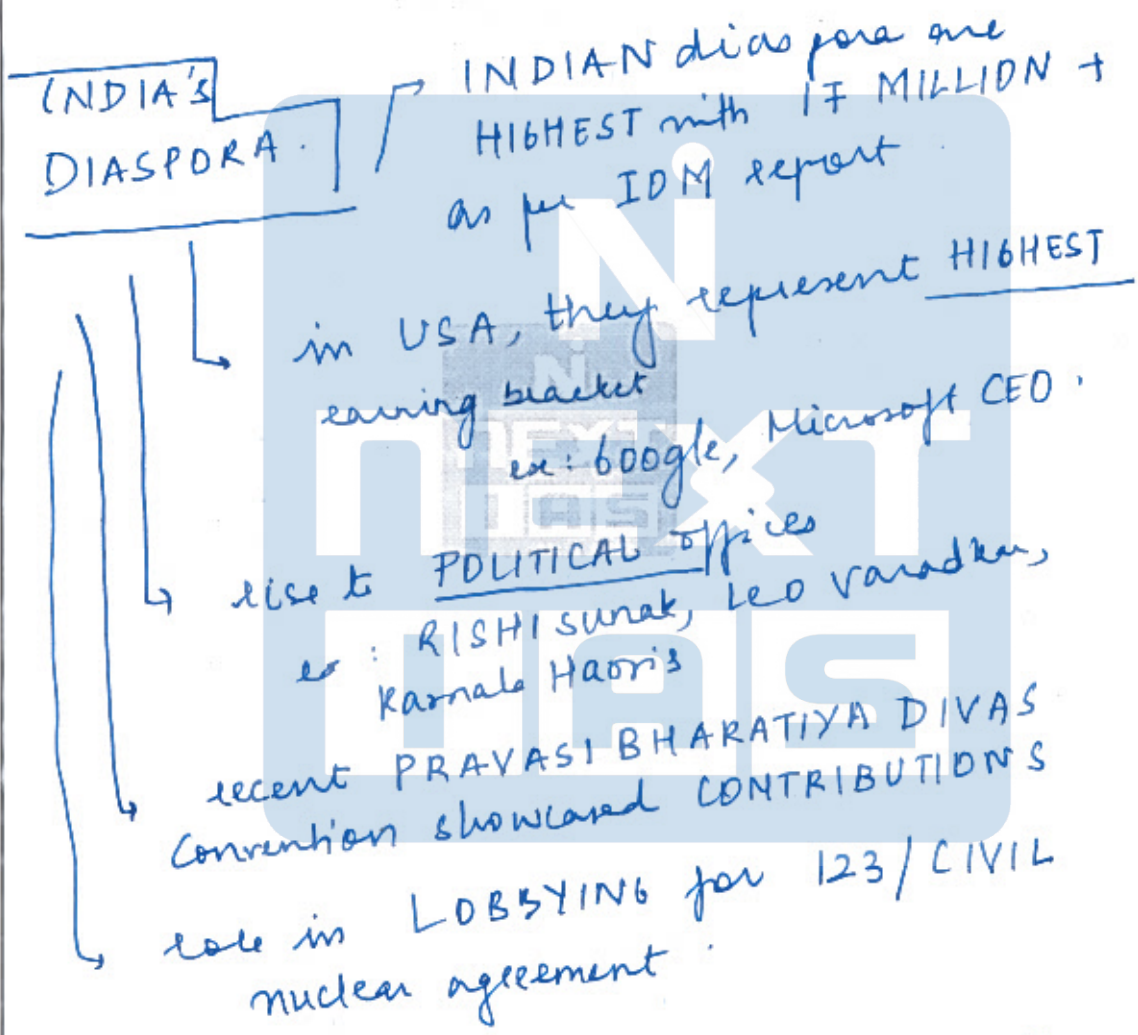 INDIA'S
DIASPORA.
INDIAN diaspora are
HIGHEST with 17 MILLION +
as per IOM report
in USA, they represent HIGHEST
earning bracket
ex: Google, Microsoft CEO.
rise to POLITICAL offices
ex: RISHI sunak, Leo Varadkar,
Kamala Harris
recent PRAVASI BHARATIYA DIVAS
Convention showcased CONTRIBUTIONS
role in LOBBYING for 123/CIVIL
nuclear agreement.
NEXT
IAS
NEXT
IAS